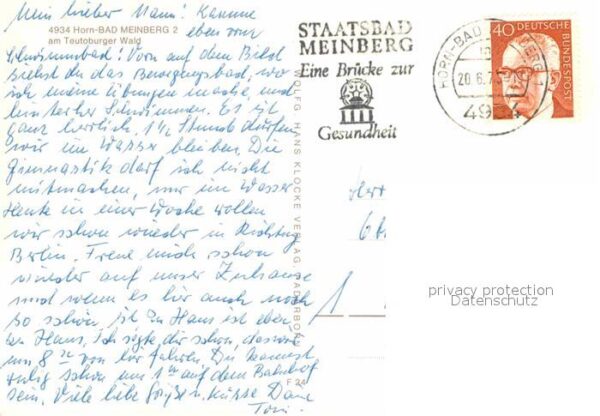 Mein lieber Mann! Komme
4934 Horn-BAD MEINBERG 2
am Teutoburger Wald
eben vom
Schwimmbad! Vorn auf dem Bild
siehst du das Bewegungsbad, wo
ich meine Übungen mache und
hinterher Schwimmen. Es ist
ganz herrlich. 1/2 Stunde dürfen
wir im Wasser bleiben. Die
Gimnastik darf ich nicht
mitmachen, nur im Wasser
Heute in einer Woche wollen
wir schon wieder in Richtung
Berlin. Freue mich schon
wieder auf unser Zuhause
und wenn es hir auch noch
so schön ist zu Haus ist eben
zu Haus. Ich sagte dir schon, das wir
um 8 von hir fahren. Du kommst
ruhig schon um 1 auf dem Bahnhof
sein. Viele liebe Grüße u. Küsse Deine
Toni.
WOLFG. HANS KLOCKE VERLAG PADERBORN
F 24
STAATSBAD
MEINBERG
Eine Brücke zur
Gesundheit
HORN-BAD MEINBERG 1
20.6.7
4934
40
DEUTSCHE
BUNDESPOST
Herr
1
privacy protection
Datenschutz